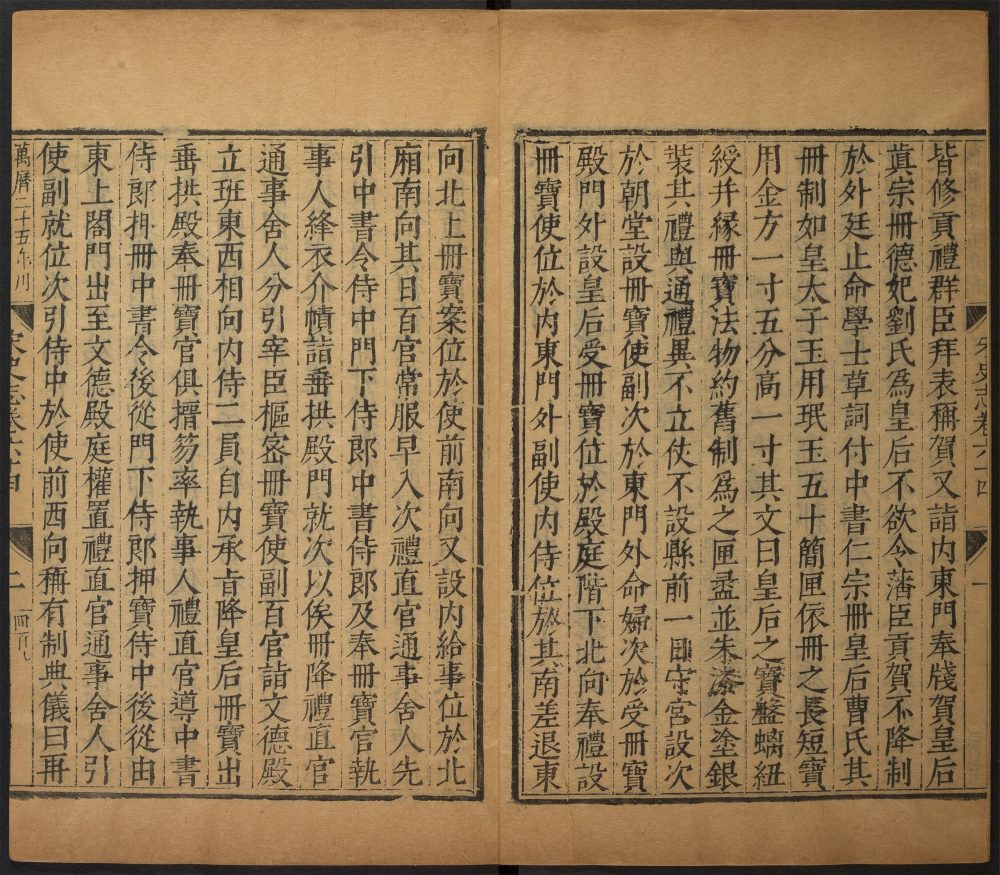 宋史志卷六十四
一
皆修貢禮群臣拜表稱賀又詣内東門奉牋賀皇后
眞宗冊德妃劉氏爲皇后不欲令藩臣貢賀不降制
於外廷止命學士草詞付中書仁宗冊皇后曹氏其
冊制如皇太子玉用珉玉五十簡匣依冊之長短寶
用金方一寸五分高一寸其文曰皇后之寶盤螭紐
綬并縁冊寶法物約舊制爲之匣盝並朱漆金塗銀
裝其禮與通禮異不立仗不設縣前一日守宮設次
於朝堂設冊寶使副次於東門外命婦次於受冊寶
殿門外設皇后受冊寶位於殿庭階下北向奉禮設
冊寶使位於内東門外副使内侍位於其南差退東
向北上冊寶案位於使前南向又設内給事位於北
廂南向其日百官常服早入次禮直官通事舍人先
引中書令侍中門下侍郎中書侍郎及奉冊寶官執
事人絳衣介幘詣垂拱殿門就次以俟冊降禮直官
通事舍人分引宰臣樞密冊寶使副百官詣文德殿
立班東西相向内侍二員自内承旨降皇后冊寶出
垂拱殿奉冊寶官俱搢笏率執事人禮直官導中書
侍郎押冊中書令後從門下侍郎押寶侍中後從由
東上閤門出至文德殿庭權置禮直官通事舍人引
使副就位次引侍中於使前西向稱有制典儀曰再
萬曆二十五年刊
宋史志卷六十四
二